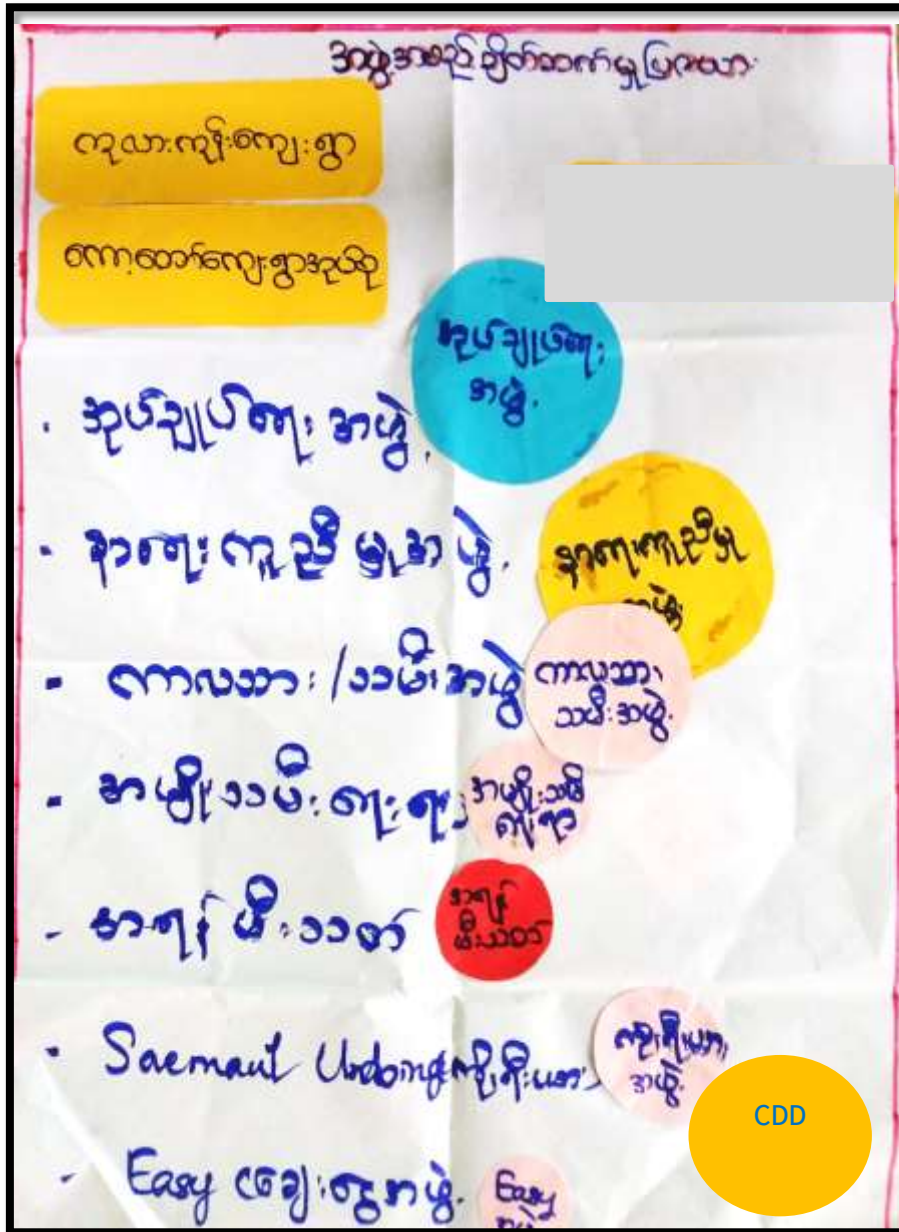 အဖွဲ့အစည်းချိတ်ဆက်မှုပြဇယား
ကုလားကျွန်းကျေးရွာ
ကော့တော်ကျေးရွာအုပ်စု
အုပ်ချုပ်ရေး
အဖွဲ့
• အုပ်ချုပ်ရေး အဖွဲ့
- နာရေးကူညီမှုအဖွဲ့
နာရေးကူညီမှု
အဖွဲ့
- ကာလသား/သမီးအဖွဲ့
ကာလသား
သမီးအဖွဲ့
- အမျိုးသမီးရေးရာ
အမျိုးသမီး
ရေးရာ
- အရန် မီးသတ်
အရန်
မီးသတ်
• Saemaul Undong ကိုရီးယား
ကိုရီးယား
အဖွဲ့
CDD
- Easy ငွေချေးငွေအဖွဲ့
Easy